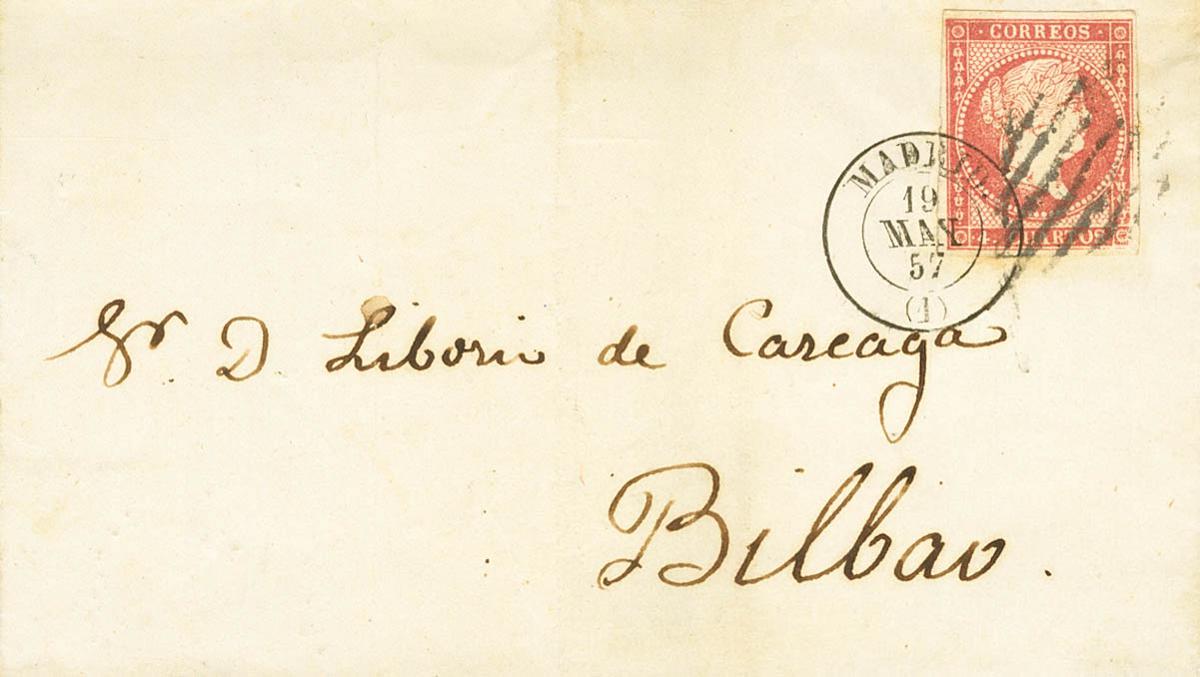 CORREOS
4 CUARTOS
MADRID.
19
MAY
57
(1)
Sr D Liborio de Careaga
Bilbao.